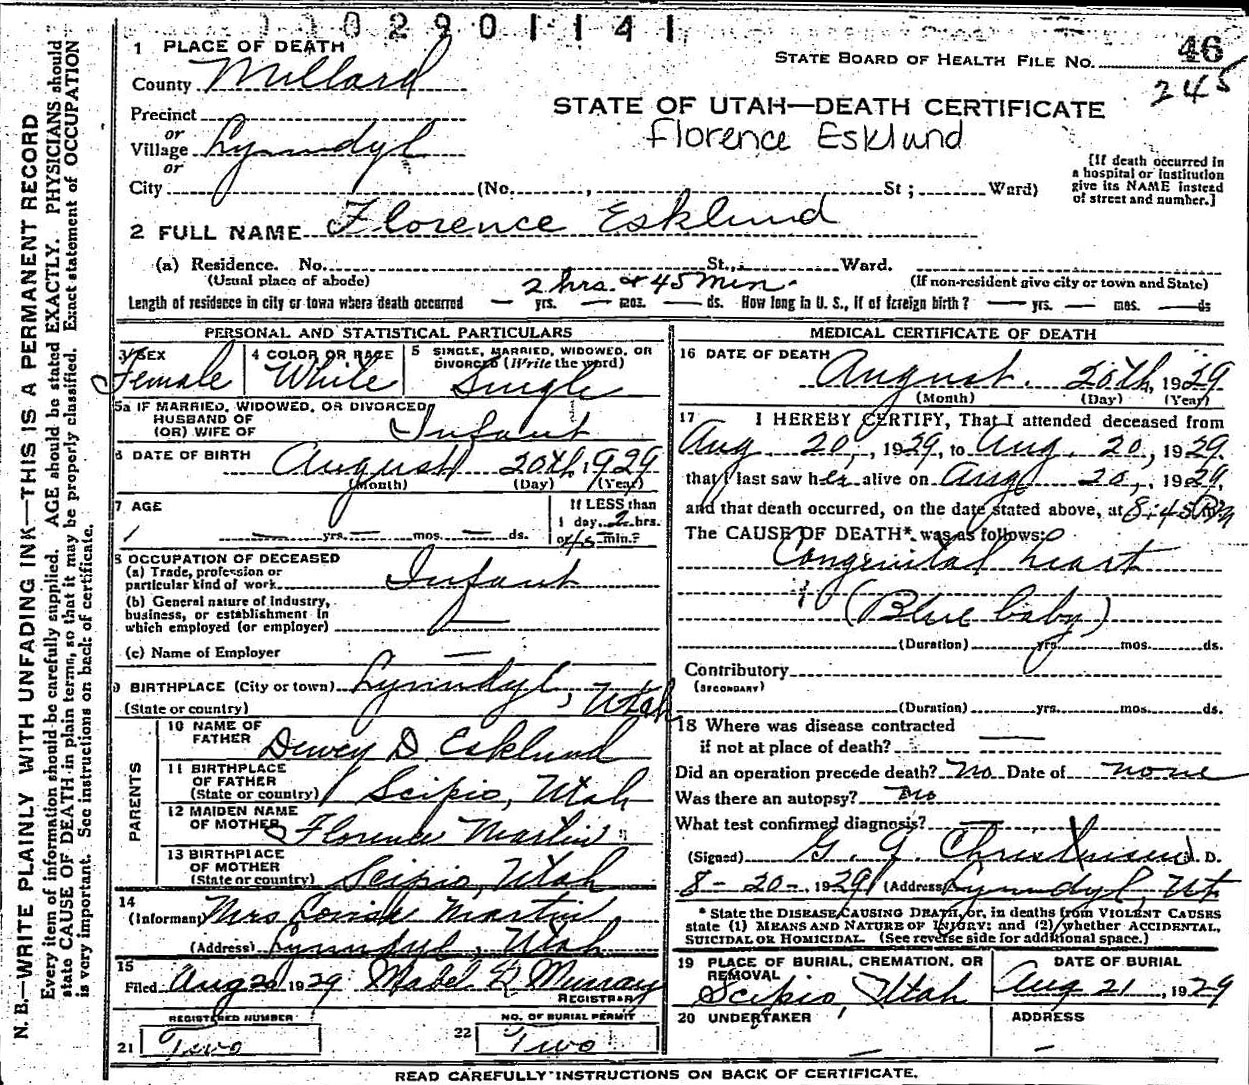 0 2 9 0 1 1 4 1
1 PLACE OF DEATH
County Millard
STATE BOARD OF HEALTH FILE NO. 46
245
Precinct
or
Village Lynndyl
or
City (No. , St; Ward)
STATE OF UTAH—DEATH CERTIFICATE
Florence Esklund
[If death occurred in
a hospital or institution
give its NAME instead
of street and number.]
2 FULL NAME Florence Esklund
(a) Residence. No. St., Ward.
(Usual place of abode) (If non-resident give city or town and State)
2 hrs. & 45 Min.
Length of residence in city or town where death occurred — yrs. — mos. — ds. How long in U. S., if of foreign birth? — yrs. — mos. — ds
PERSONAL AND STATISTICAL PARTICULARS
3 SEX
Female
4 COLOR OR RACE
White
5 SINGLE, MARRIED, WIDOWED, OR
DIVORCED (Write the word)
Single
5a IF MARRIED, WIDOWED, OR DIVORCED
HUSBAND OF
(OR) WIFE OF Infant
6 DATE OF BIRTH August 20th, 1929
(Month) (Day) (Year)
7 AGE
— yrs. — mos. — ds.
If LESS than
1 day, 2 hrs.
or 45 min.?
8 OCCUPATION OF DECEASED
(a) Trade, profession or
particular kind of work Infant
(b) General nature of industry,
business, or establishment in
which employed (or employer) —
(c) Name of Employer —
9 BIRTHPLACE (City or town) Lynndyl, Utah
(State or country)
PARENTS
10 NAME OF
FATHER Dewey D. Esklund
11 BIRTHPLACE
OF FATHER
(State or country) Scipio, Utah
12 MAIDEN NAME
OF MOTHER Florence Martin
13 BIRTHPLACE
OF MOTHER
(State or country) Scipio, Utah
14
(Informant) Mrs Louise Martin
(Address) Lynndyl, Utah
15
Filed Aug 20 1929 Mabel R Murray
REGISTRAR
REGISTERED NUMBER
21 Two
NO. OF BURIAL PERMIT
22 Two
MEDICAL CERTIFICATE OF DEATH
16 DATE OF DEATH
August. 20th, 1929
(Month) (Day) (Year)
17 I HEREBY CERTIFY, That I attended deceased from
Aug 20, 1929, to Aug. 20, 1929.
that I last saw her alive on Aug 20, 1929,
and that death occurred, on the date stated above, at 8:45 P.m
The CAUSE OF DEATH* was as follows:
Congenital heart
(Blue baby)
(Duration) yrs. mos. ds.
Contributory
(SECONDARY)
(Duration) yrs. mos. ds.
18 Where was disease contracted
if not at place of death? —
Did an operation precede death? No Date of none
Was there an autopsy? No
What test confirmed diagnosis? —
(Signed) G. J. Christensen M. D.
8-20-, 1929 (Address) Lynndyl, Ut
* State the DISEASE CAUSING DEATH, or, in deaths from VIOLENT CAUSES
state (1) MEANS AND NATURE OF INJURY; and (2) whether ACCIDENTAL,
SUICIDAL OR HOMICIDAL. (See reverse side for additional space.)
19 PLACE OF BURIAL, CREMATION, OR
REMOVAL
Scipio, Utah
DATE OF BURIAL
Aug 21, 1929
20 UNDERTAKER —
ADDRESS —
READ CAREFULLY INSTRUCTIONS ON BACK OF CERTIFICATE.
N. B.—WRITE PLAINLY WITH UNFADING INK—THIS IS A PERMANENT RECORD
Every item of information should be carefully supplied. AGE should be stated EXACTLY. PHYSICIANS should
state CAUSE OF DEATH in plain terms, so that it may be properly classified. Exact statement of OCCUPATION
is very important. See instructions on back of certificate.